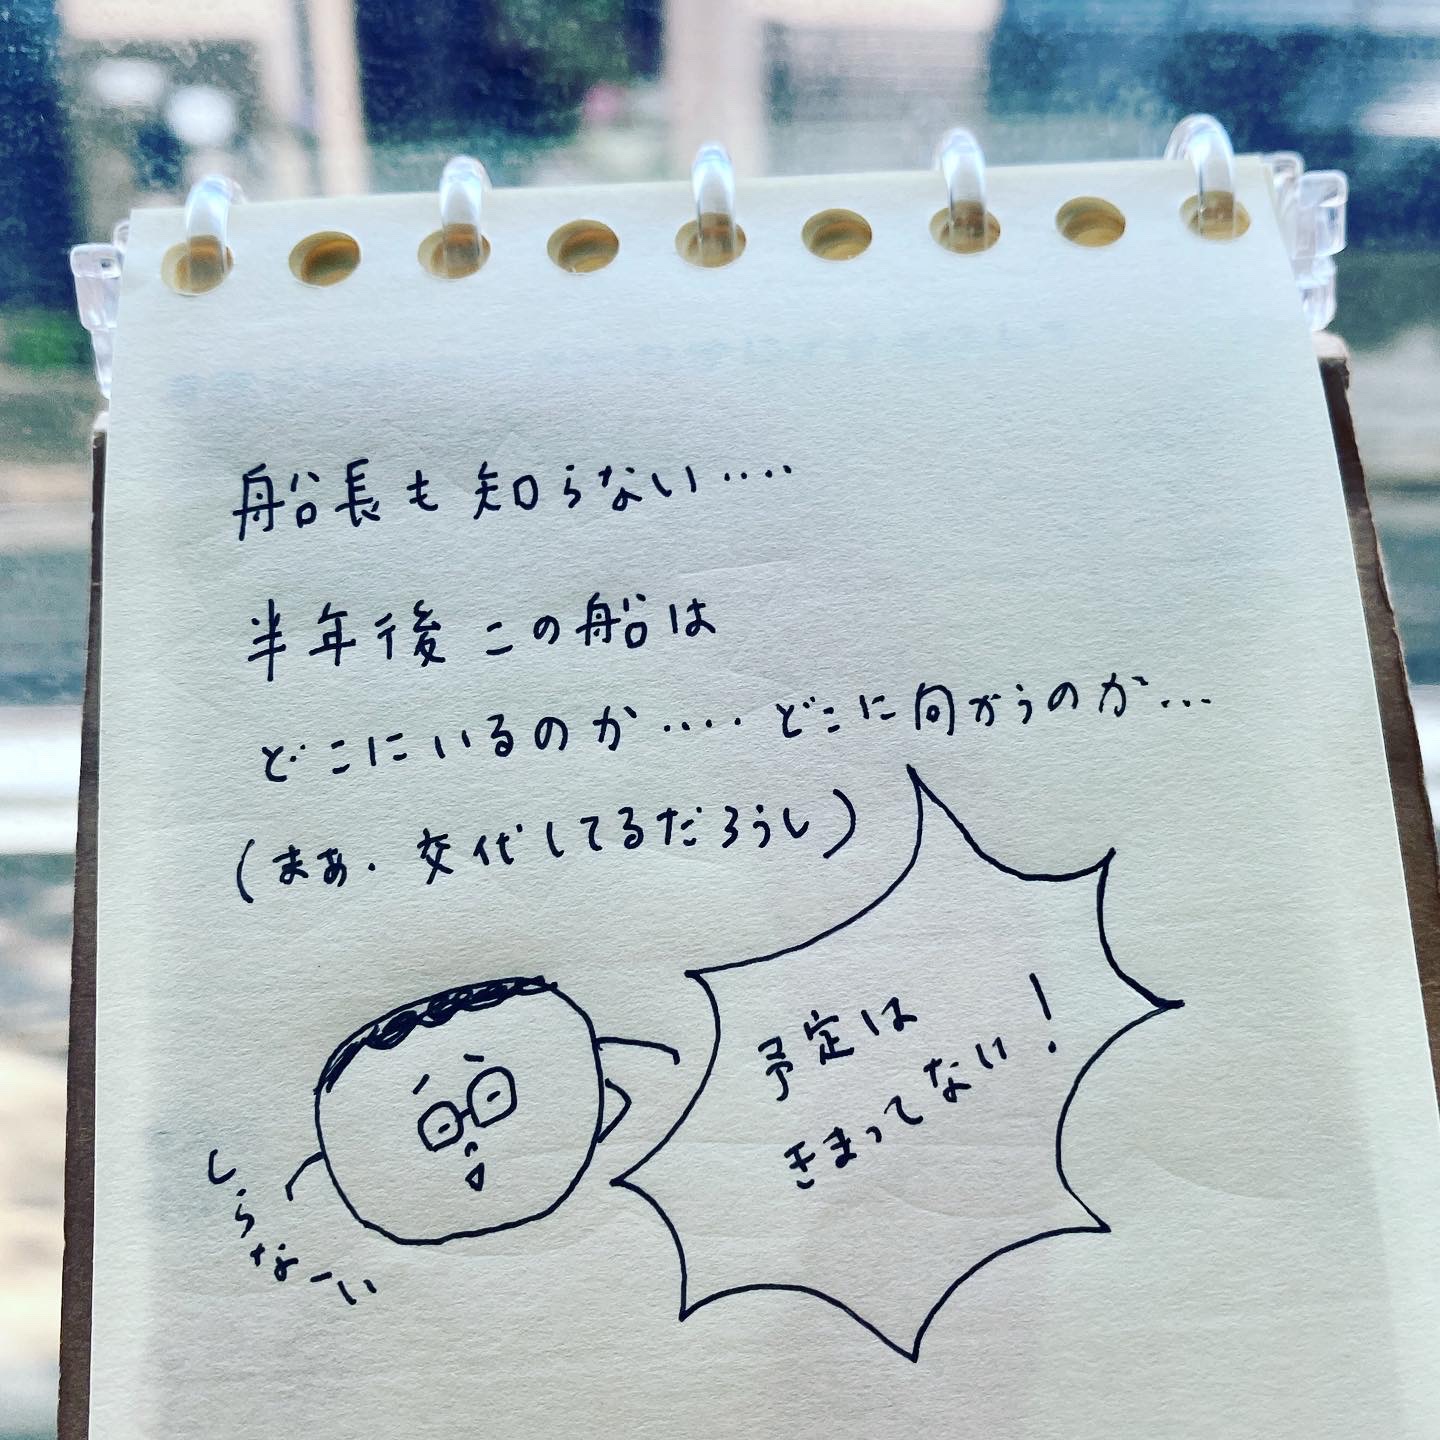 船長も知らない‥‥
半年後この船は
どこにいるのか‥‥どこに向かうのか…
(まあ.交代してるだろうし)
予定は
きまってない!
しらなーい